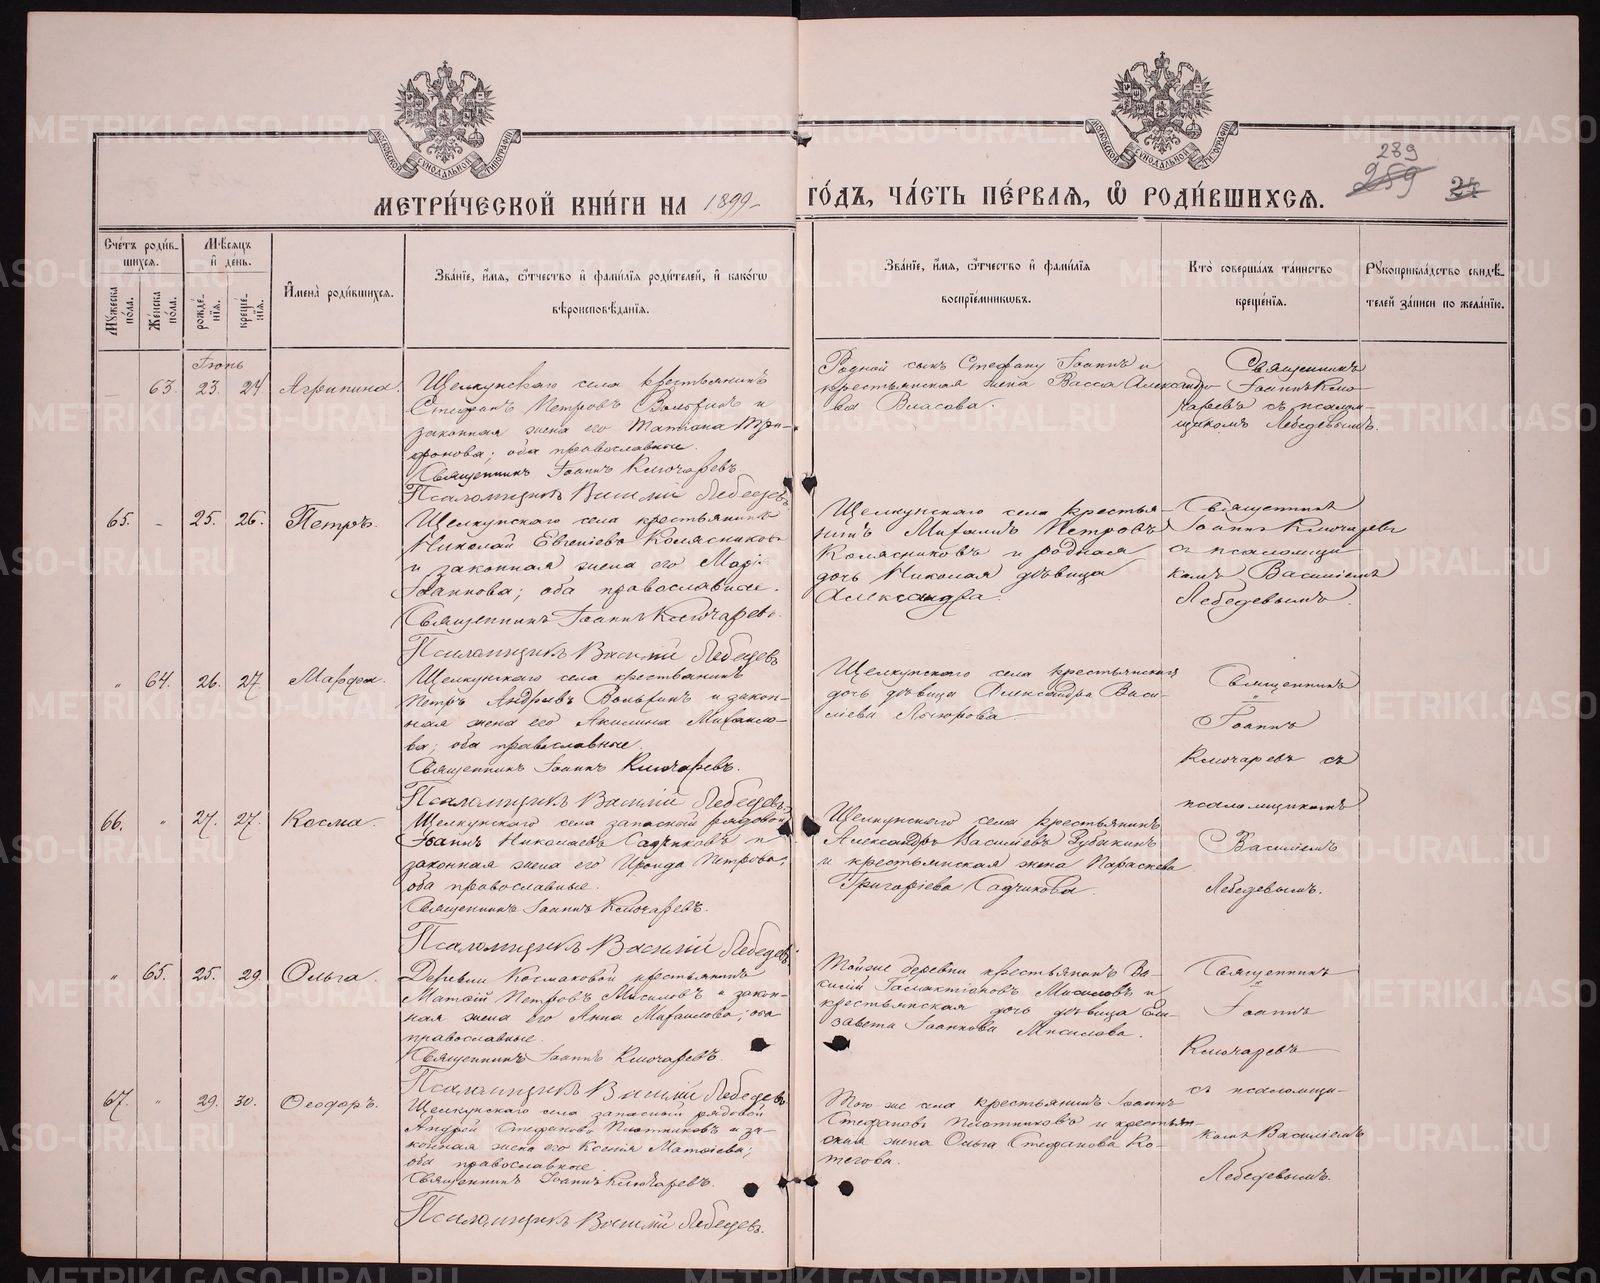 МОСКОВСКОЙ СУНОДАЛЬНОЙ ТИПОГРАФІИ
МОСКОВСКОЙ СУНОДАЛЬНОЙ ТИПОГРАФІИ
289
259 24
МЕТРИ́ЧЕСКОЙ КНИ́ГИ НА 1899 ГО́ДЪ, ЧА́СТЬ ПЕ́РВАѦ, Ѽ РОДИ́ВШИХСѦ.
Сче́тъ роди́в-
шихсѧ.
Мꙋ́жеска по́ла.
Же́нска по́ла.
Мѣ́сѧцъ и҆ де́нь.
рожде́-
нїѧ.
креще́-
нїѧ.
И҆мена̀ роди́вшихсѧ.
Зва́нїе, и҆́мѧ, ѻ҆́тчество и҆ фами́лїѧ роди́телей, и҆ како́гѡ
вѣроисповѣ́данїѧ.
Зва́нїе, и҆́мѧ, ѻ҆́тчество и҆ фами́лїѧ
воспрїе́мникѡвъ.
Кто̀ соверша́лъ та́инство
креще́нїѧ.
Рꙋкоприкла́дство свидѣ́-
телей за́писи по жела́нїю.
Іюнь
63. 23. 24 Агрипина.
Щелкунскаго села крестьянинъ
Стефанъ Петровъ Вольфинъ и
законная жена его Татіана Три-
фонова; оба православные.
Священникъ Іоаннъ Ключаревъ
Псаломщикъ Василій Лебедевъ
Родной сынъ Стефану Іоаннъ и
крестьянская жена Васса Александро
ва Власова.
Священникъ
Іоаннъ Клю-
чаревъ съ псалом-
щикомъ Лебедевымъ.
65. - 25. 26. Петръ.
Щелкунскаго села крестьянинъ
Николай Евгеніевъ Колясниковъ
и законная жена его Марі
Іоаннова; оба православные.
Священникъ Іоаннъ Ключаревъ.
Псаломщикъ Василій Лебедевъ
Щелкунскаго села крестья-
нинъ Михаилъ Петровъ
Колясниковъ и родная
дочь Николая дѣвица
Александра.
Священникъ
Іоаннъ Ключаревъ
съ псаломщи
комъ Василіемъ
Лебедевымъ.
" 64. 26. 27 Марфа.
Щелкунскаго села крестьянинъ
Петръ Андреевъ Вольфинъ и закон-
ная жена его Акилина Михаило-
ва; оба православные.
Священникъ Іоаннъ Ключаревъ.
Псаломщикъ Василій Лебедевъ.
Щелкунскаго села крестьянская
дочь дѣвица Александра Васи-
ліева
Священникъ
Іоаннъ
Ключаревъ съ
псаломщикомъ
Василіемъ
Лебедевымъ.
66. " 27. 27. Косма.
Щелкунскаго села запасный рядовой
Іоаннъ Николаевъ Садчиковъ и
законная жена его Ираида Петрова,
оба православные.
Священникъ Іоаннъ Ключаревъ.
Псаломщикъ Василій Лебедевъ
Щелкунскаго села крестьянинъ
Александръ Василіевъ Зубакинъ
и крестьянская жена Параскева
Григоріева Садчикова.
" 65. 25. 29. Ольга.
Деревни Космаковой крестьянинъ
Матѳій Петровъ Мисиловъ и закон-
ная жена его Анна Михаилова; оба
православные.
Священникъ Іоаннъ Ключаревъ.
Псаломщикъ Василій Лебедевъ
Тойже деревни крестьянинъ Ва-
силій Галактіоновъ Мисиловъ и
крестьянская дочь дѣвица Ели-
завета Іоаннова Мисилова.
Священникъ
Іоаннъ
Ключаревъ
съ псаломщи-
комъ Василіемъ
Лебедевымъ.
67. " 29. 30. Ѳеодоръ.
Щелкунскаго села запасный рядовой
Андрей Стефановъ Плотниковъ и за-
конная жена его Ксенія Матѳіева;
оба православные.
Священникъ Іоаннъ Ключаревъ.
Псаломщикъ Василій Лебедевъ.
Того же села крестьянинъ Іоаннъ
Стефановъ Плотниковъ и крестьян-
ская жена Ольга Стефанова Ко-
тегова.
METRIKI.GASO-URAL.RU